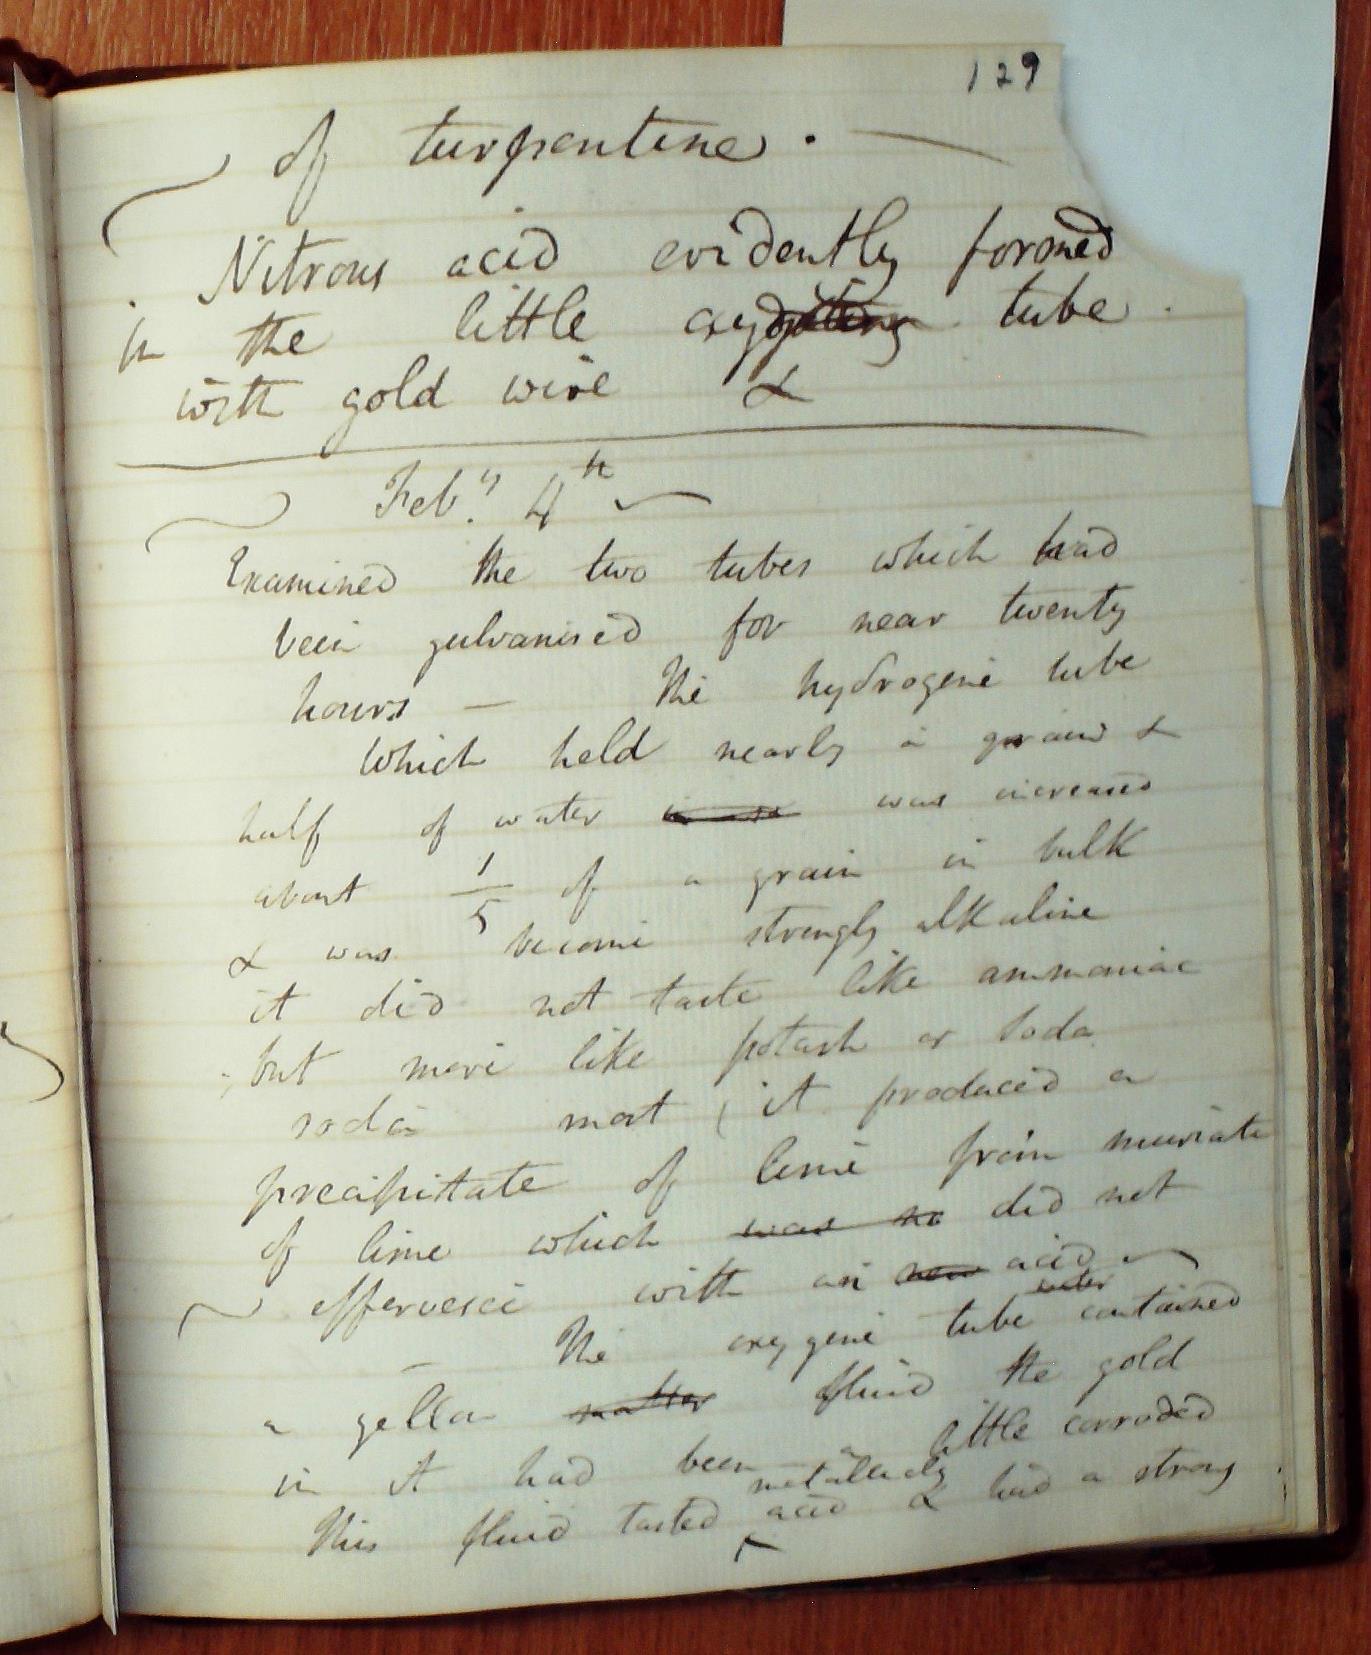 129
of turpentine. —
Nitrous acid evidently formed
in the little tube
with gold wire &
Feb.y 4th
Examined the two tubes which had
been galvanised for near twenty
hours — The hydrogene tube
which held nearly a grain &
half of water was increased
about 1/5 of a grain in bulk
& was become strongly alkaline
it did not taste like ammoniac
but more like potash or soda
soda most, it produced a
precipitate of lime from muriate
of lime which was no did not
effervesce with an acid
— The oxygene tube water contained
a yellow matter fluid the gold
in it had been a little corroded
This fluid tasted metallicly acid & had a strong